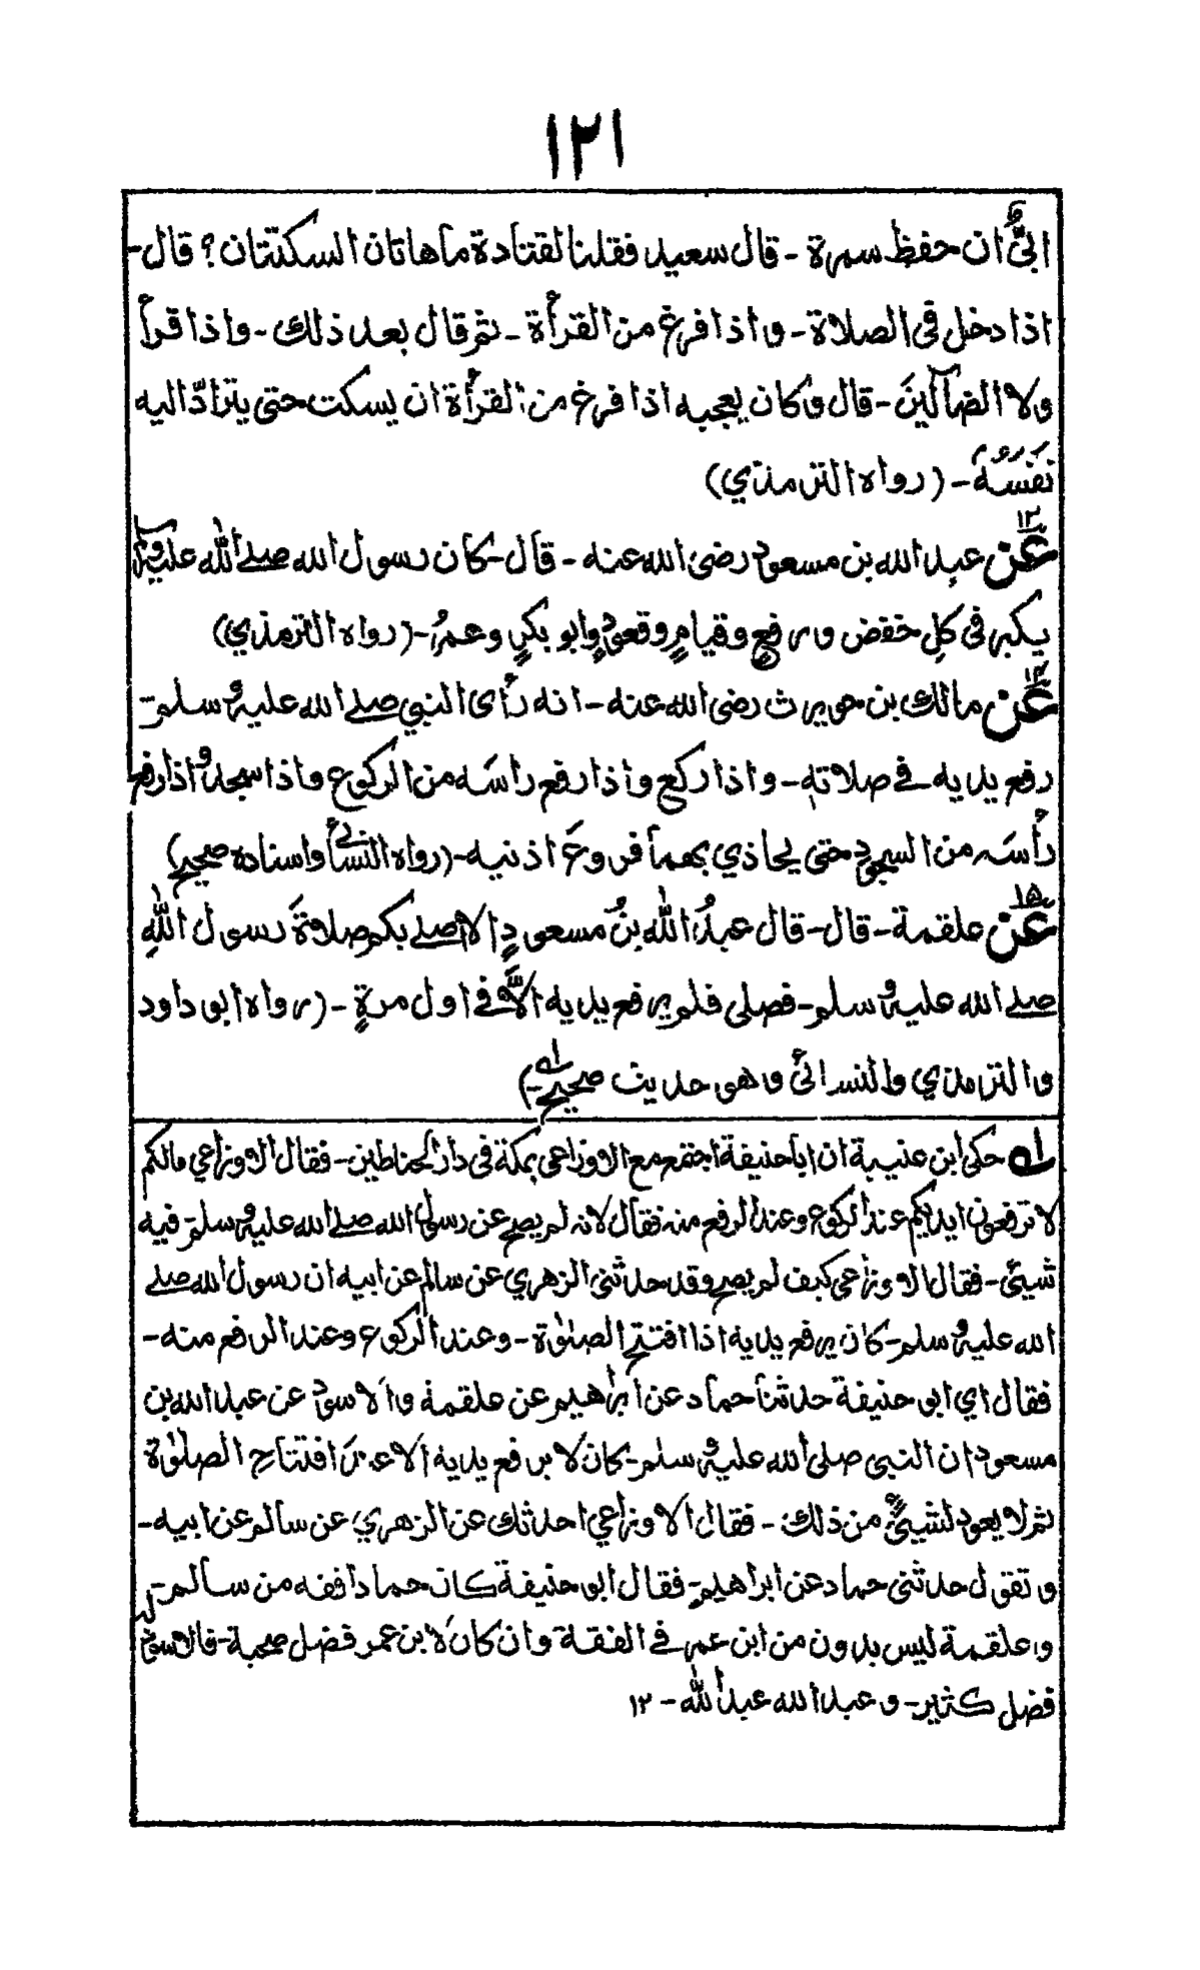 ١٢١
ابیٌّ ان حفظ سمرة - قال سعيد فقلنا لقتادة ما هاتان السكتتان؟ قال -
اذا دخل فى الصلاة - واذا فرغ من القرأة - ثم قال بعد ذلك - واذا قرأ
ولا الضآلينَ - قال وكان يعجبه اذا فرغ من القرأة ان يسكت حتى يترادّ اليه
نَفَسُهٗ - (رواه الترمذي)
١٣
عن عبد الله بن مسعود رضى الله عنه - قال - كان رسول الله صلے الله عليه و
يكبر فى كلِ خفض ورفعٍ وقيامٍ وقعودٍ وابو بكرٍ وعمرُ - (رواه الترمذي)
١٤
عن مالك بن حويرث رضى الله عنه - انه رأى النبي صلے الله عليه وسلم -
رفع يديه فے صلاته - واذا ركع واذا رفع راسَه من الركوع واذا سجد واذا رفع
رأسَه من السجودِ حتى يحاذي بهما فروعَ اذنيه - (رواه النسائى واسناده صحيح)
١٥
عن علقمة - قال - قال عبدُ الله بنُ مسعودٍ الا اصلے بكم صلاةَ رسول اللهِ
صلے الله عليه وسلم - فصلى فلم يرفع يديه الَّا فے اول مرةٍ - (رواه ابو داود
والترمذي والنسرائى وهو حديث صحيح -) لـه
لـه حكى ابن عنيبة ان ابا حنيفة اجتمع مع الاوزاعى بمكة فى دار الحناطين - فقال الاوزاعي مالكم
لا ترفعون ايديكم عند الركوع وعند الرفع منه فقال لانه لم يصح عن رسول الله صلے الله عليه وسلم فيه
شيئى - فقال الاوزاعى كيف لم يصح وقد حدثنى الزهري عن سالم عن ابيه ان رسول الله صلے
الله عليه وسلم - كان يرفع يديه اذا افتتح الصلوٰة - وعند الركوع وعند الرفع منه -
فقال اي ابو حنيفة حدثنا حماد عن ابراهيم عن علقمة والاسود عن عبد الله بن
مسعود ان النبى صلى الله عليه وسلم - كان لا يرفع يديه الا عند افتتاح الصلوٰة
ثم لا يعود لشيئى من ذلك - فقال الاوزاعي احدثك عن الزهري عن سالم عن ابيه -
وتقول حدثنى حماد عن ابراهيم - فقال ابو حنيفة كان حماد افقه من سالم -
وعلقمة ليس بدون من ابن عمر فے الفقة وان كان لابن عمر فضل صحبة - فالاسود له
فضل كثير - وعبد الله عبد الله - ١٢